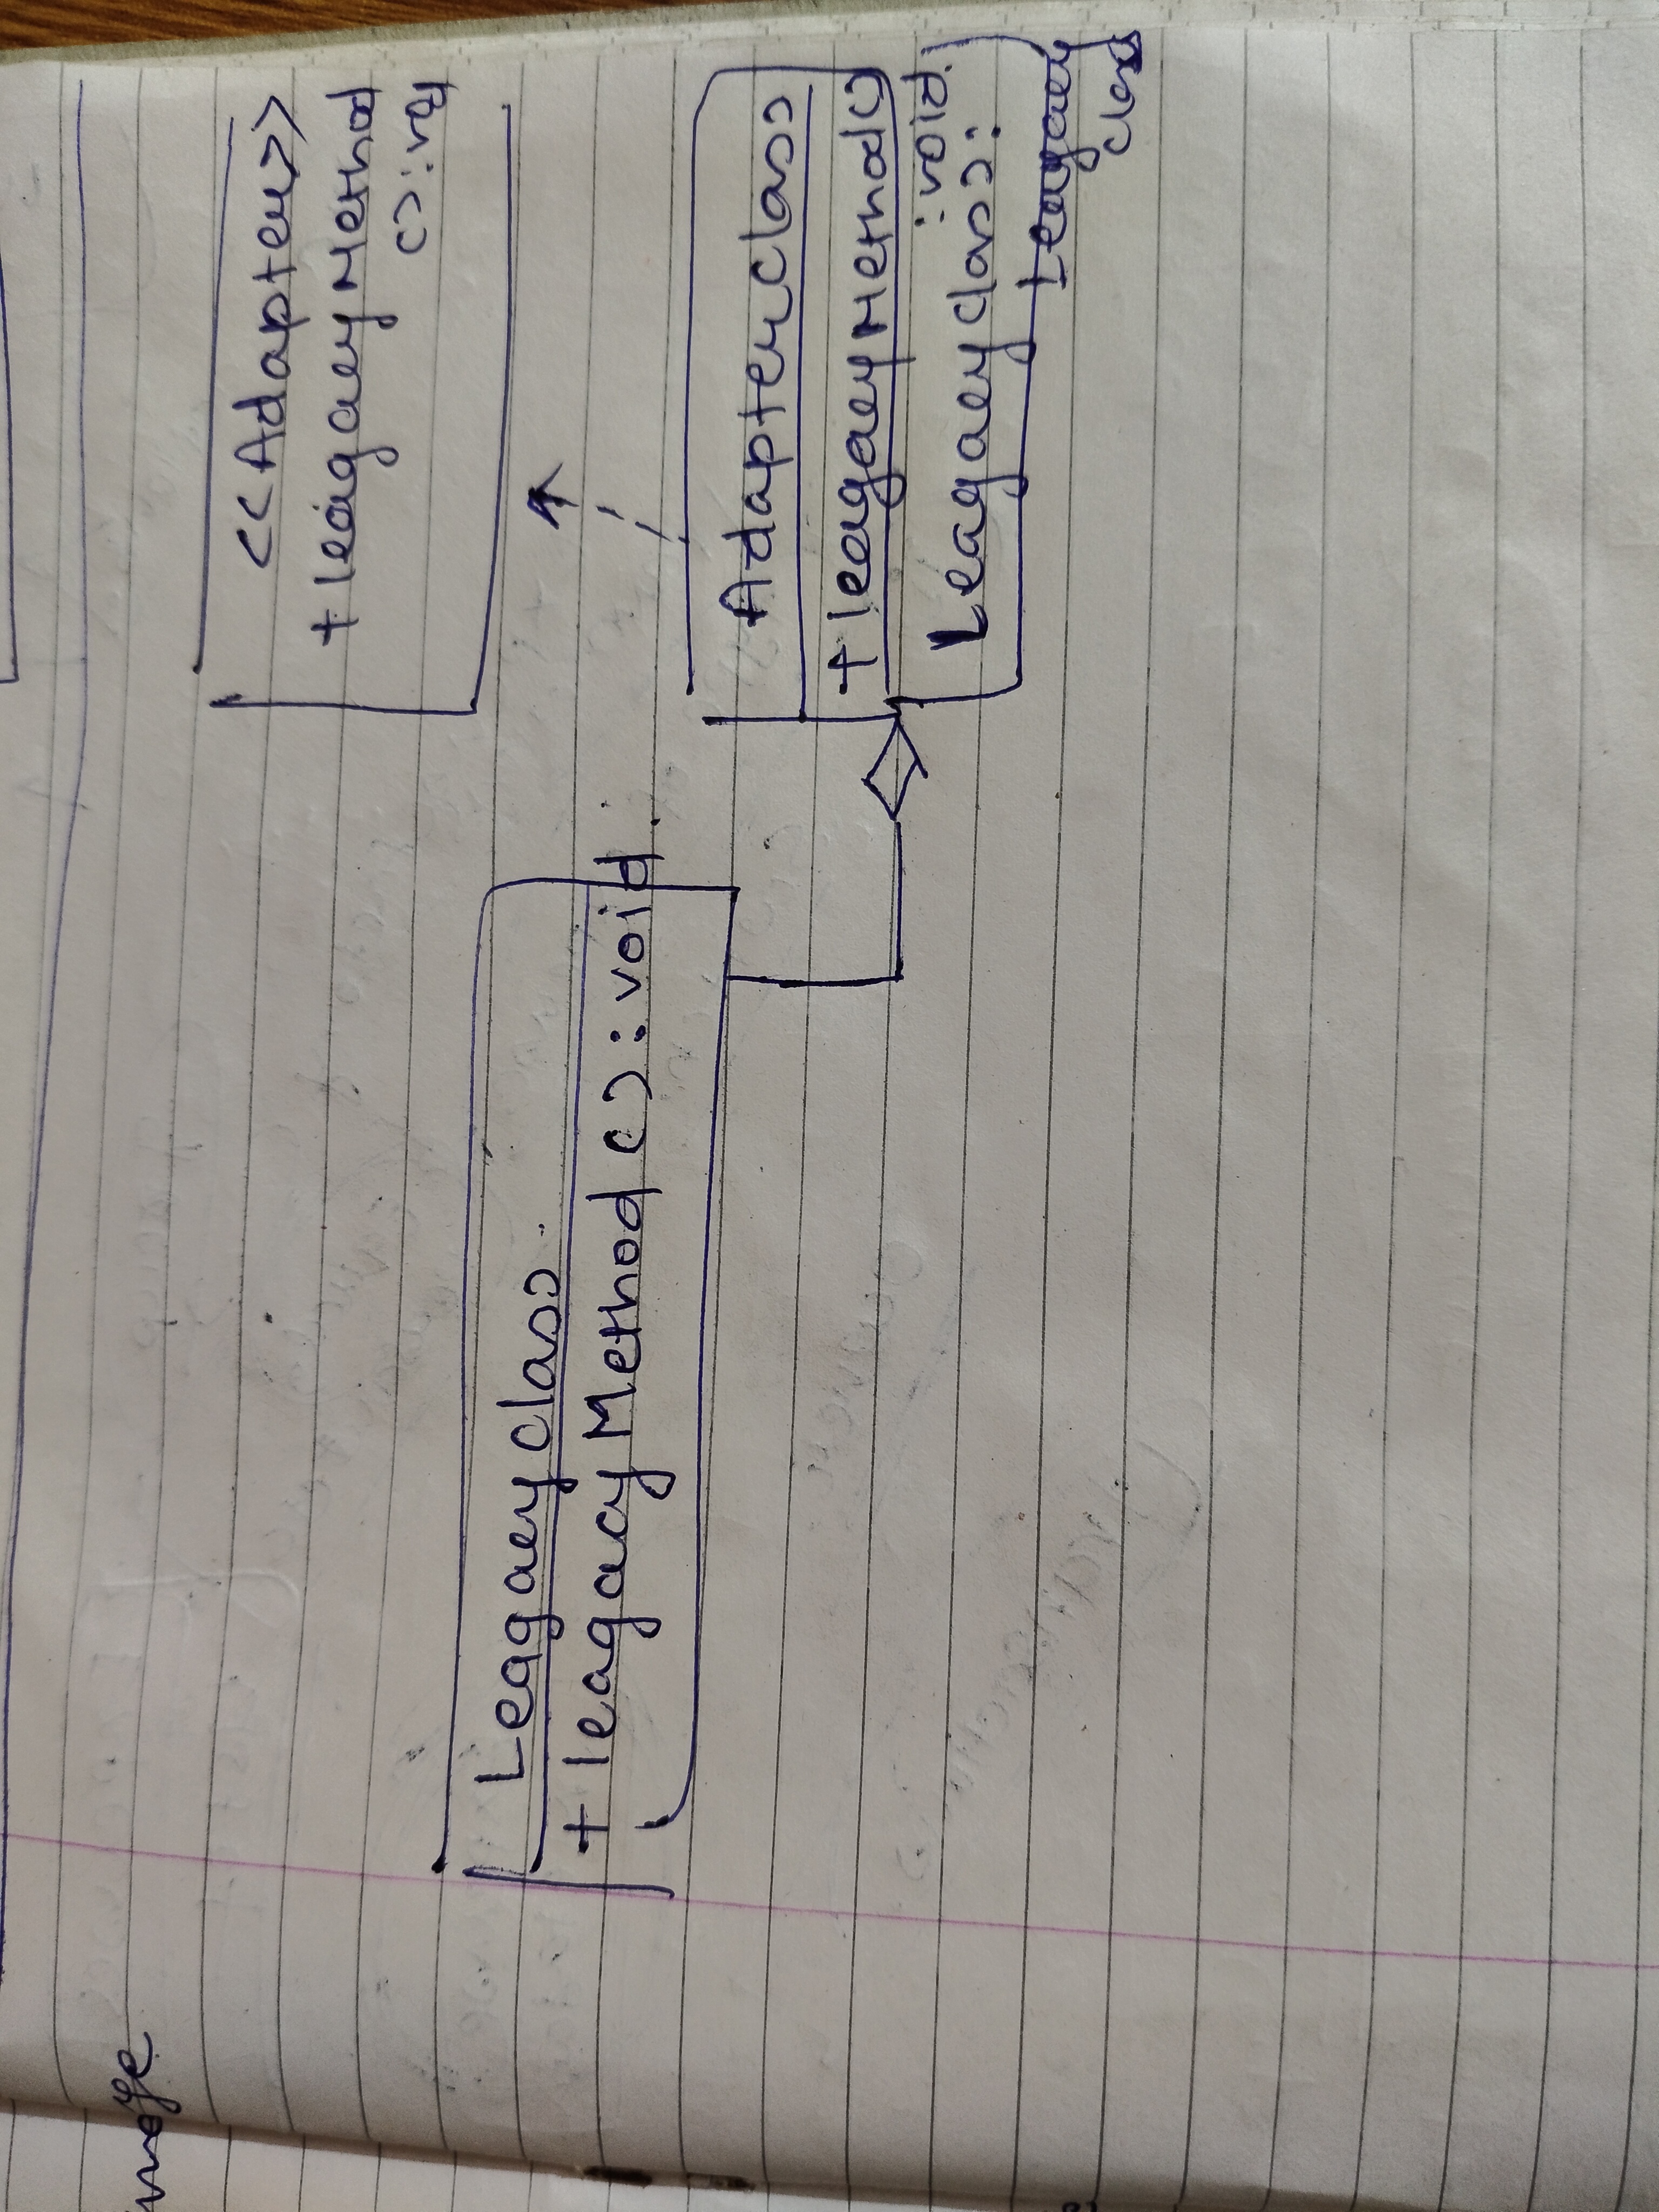 <<Adapter>>
+ leagacyMethod
():void
Leagacyclass
+ leagacyMethod():void.
Adapterclass
+leagacyMethod()
:void.
Leagacyclass:
Leagacy
class